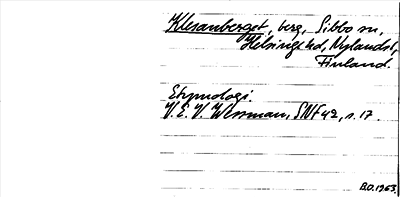 Klesanberget, berg, Sibbo sn,
Helsinge hd, Nylands l,
Finland.
Etymologi
V. E. V. Wessman, SNF 42, s. 17.
B.O. 1963.